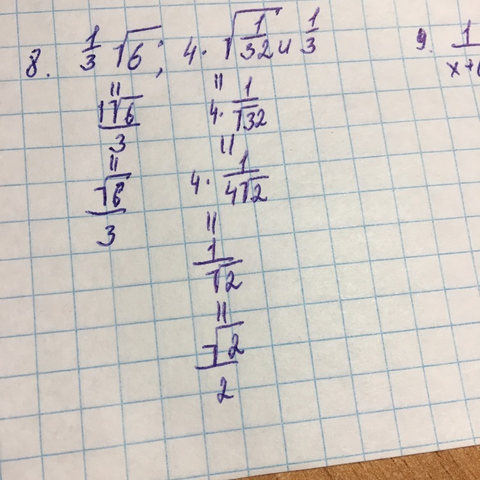 8. 1/3 √6 ; 4 · √(1/32) и 1/3
9. 1/x+
"
1√6/3
"
√6/3
"
4 · 1/√32
"
4 · 1/4√2
"
1/√2
"
√2/2